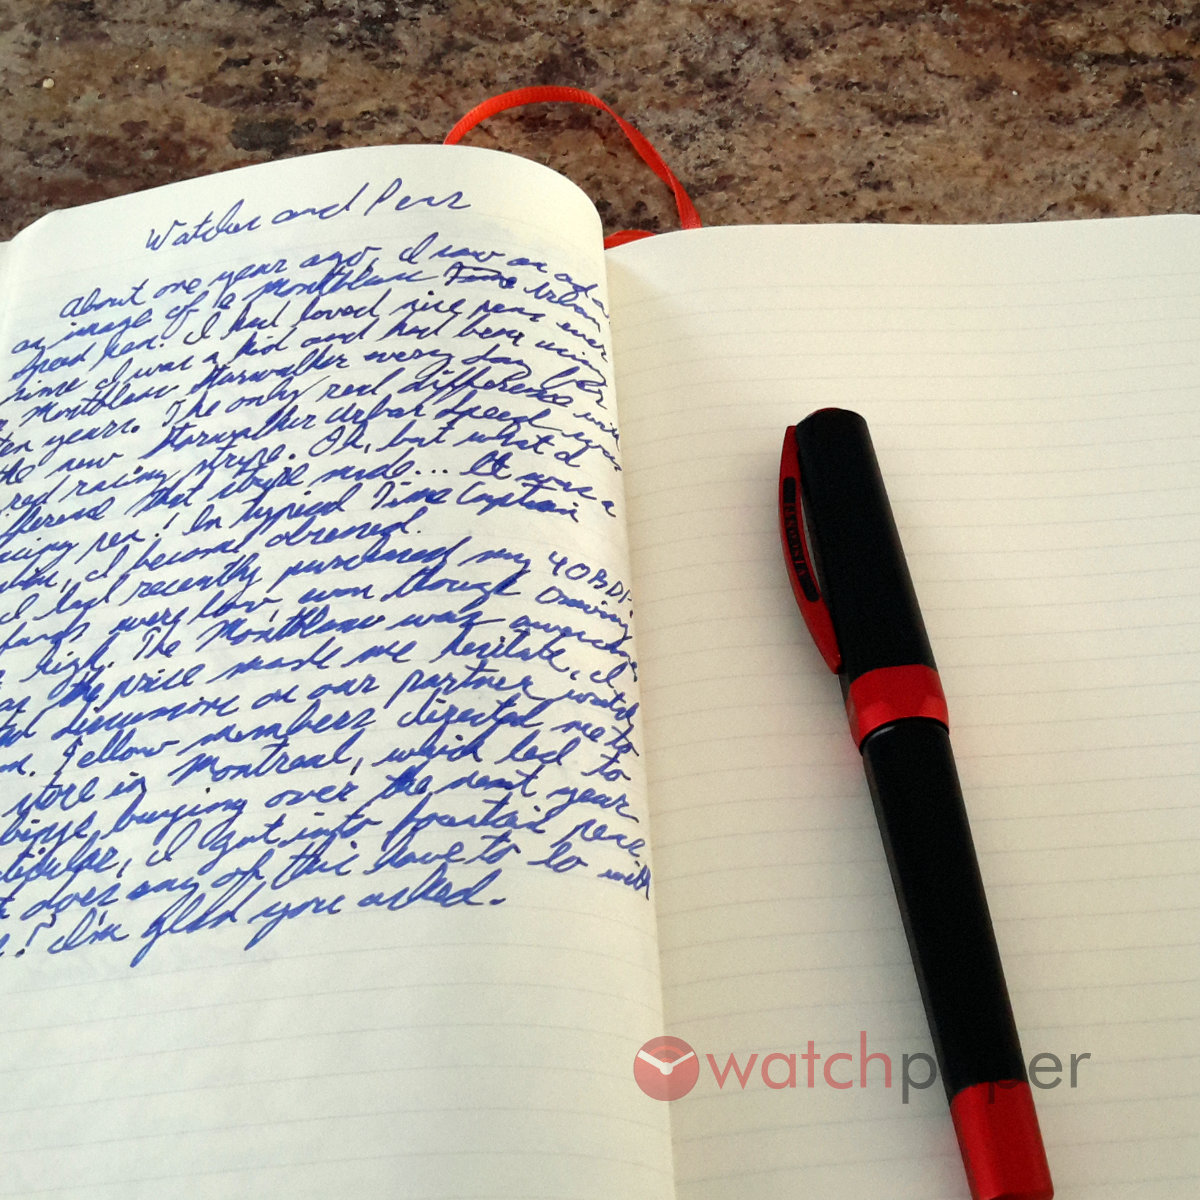 Watches and Pens
About one year ago, I saw an ad
an image of a Montblanc Urban
Speed pen. I had loved nice pens ever
since I was a kid and had been using
Montblanc Starwalker every day for
ten years. The only real difference with
the new Starwalker Urban Speed was
red racing stripe. Oh, but what a
that stripe made... It was a
racing pen! In typical Time Captain
I became obsessed.
I had recently purchased my
funds were low, even though craving
high. The Montblanc was
as the price made me hesitate, I
discussion on our partner watch
Fellow members directed me to
store in Montreal, which led to
binge buying over the next year
I got into fountain pens
does any of this have to do with
I'm glad you asked.
VISCONTI
watchpaper